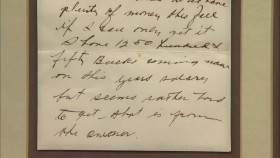 plenty of money this Fall
if I can only get it
I have 1250 hundred &
fifty Bucks coming now
on this years salary
but seems rather hard
to get - that is from
the owner.